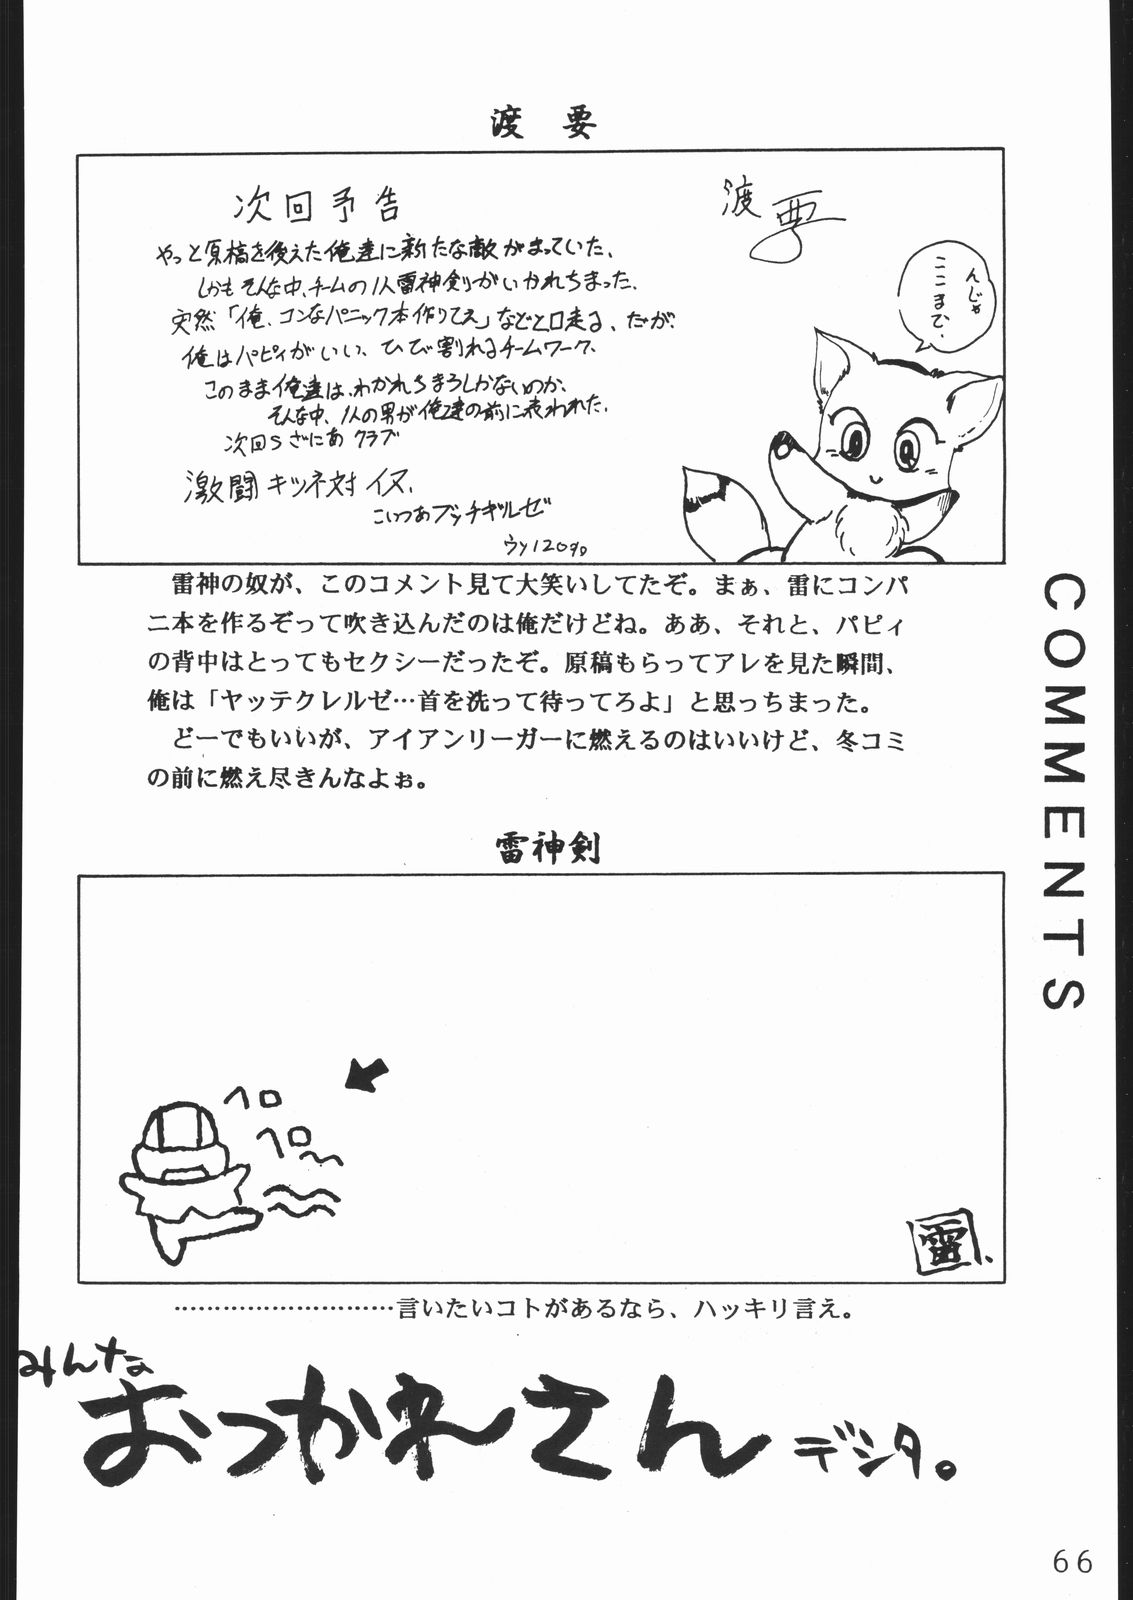 渡 要
次回予告
渡 要
やっと原稿を終えた俺達に新たな敵がまっていた、
しかもそんな中、チームの1人雷神剣がいかれちまった、
突然「俺、コンなパニック本作りてえ」などと口走る、だが、
俺はパピィがいい、ひび割れるチームワーク、
このまま俺達は、わかれちまうしかないのか、
そんな中、1人の男が俺達の前に表われた、
次回Sざにあクラブ
激闘キツネ対イヌ、
こいつあブッチギルゼ
120%
んじゃ
ここまで、
雷神の奴が、このコメント見て大笑いしてたぞ。まぁ、雷にコンパ
ニ本を作るぞって吹き込んだのは俺だけどね。ああ、それと、パピィ
の背中はとってもセクシーだったぞ。原稿もらってアレを見た瞬間、
俺は「ヤッテクレルゼ…首を洗って待ってろよ」と思っちまった。
どーでもいいが、アイアンリーガーに燃えるのはいいけど、冬コミ
の前に燃え尽きんなよぉ。
COMMENTS
雷神剣
ヘロ
ヘロ
雷
………………………言いたいコトがあるなら、ハッキリ言え。
みんな
おつかれさん デシタ。
66